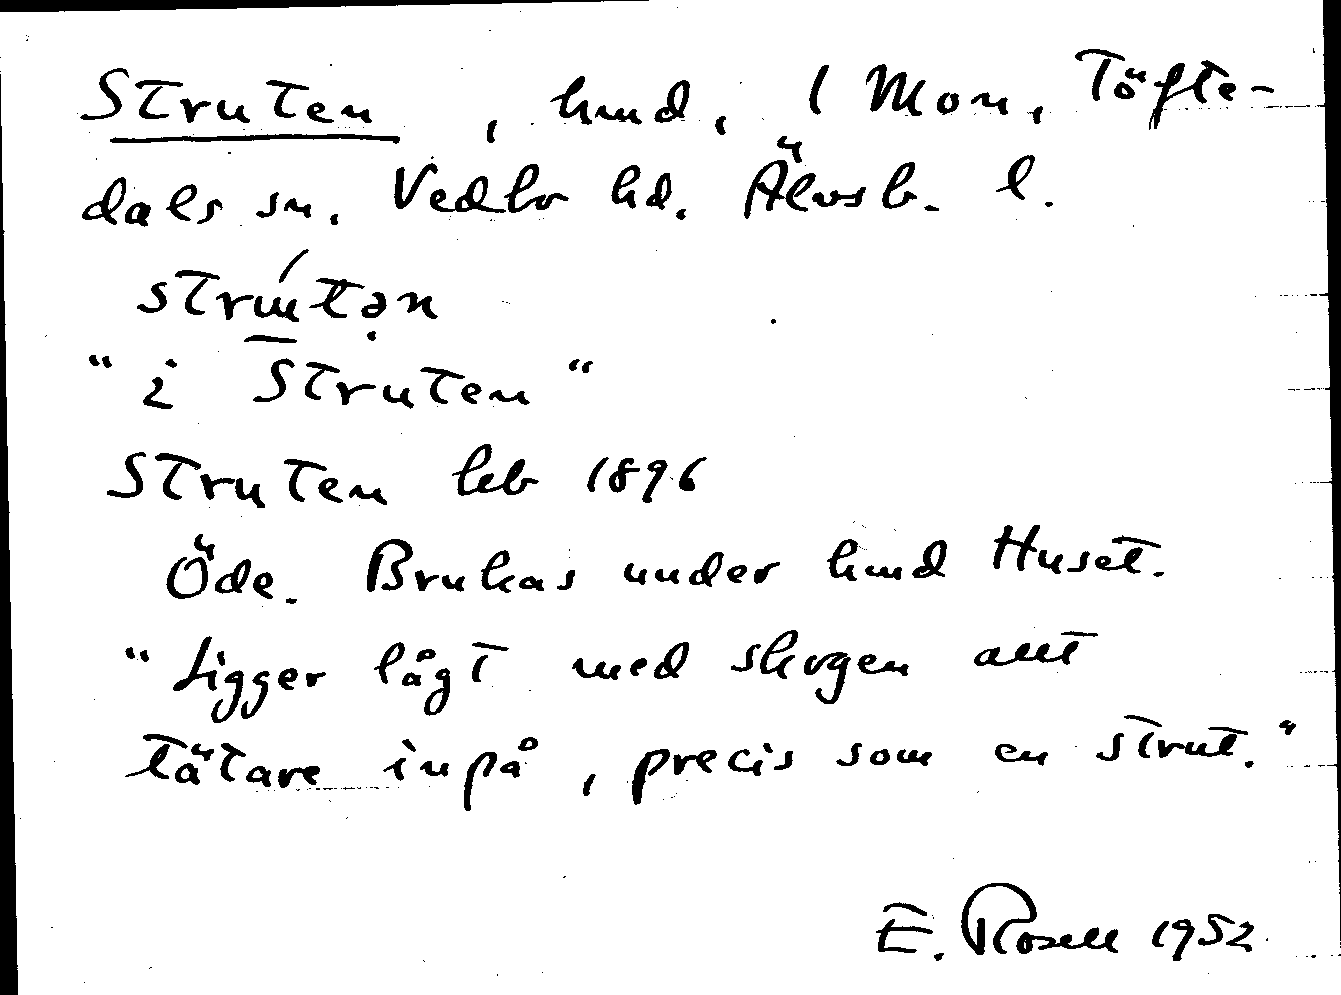 Struten, hmd, 1 Mon, Töfte-
dals sn. Vedbo hd. Älvsb. l.
strɯ́tən
"i Struten"
Struten leb 1896
Öde. Brukas under hmd Huset.
"Ligger lågt med skogen allt
tätare inpå, precis som en strut."
E. Rosell 1952